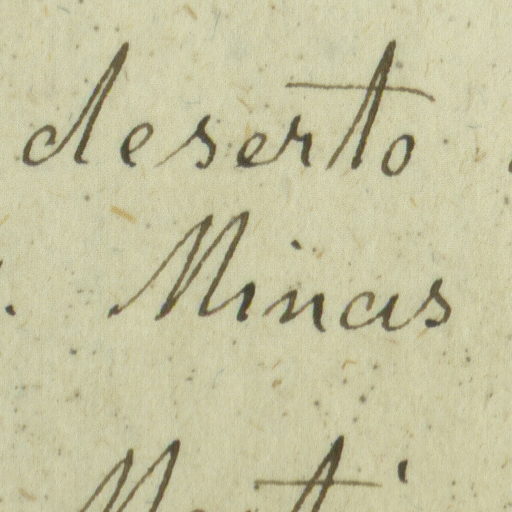 deserto
Minas